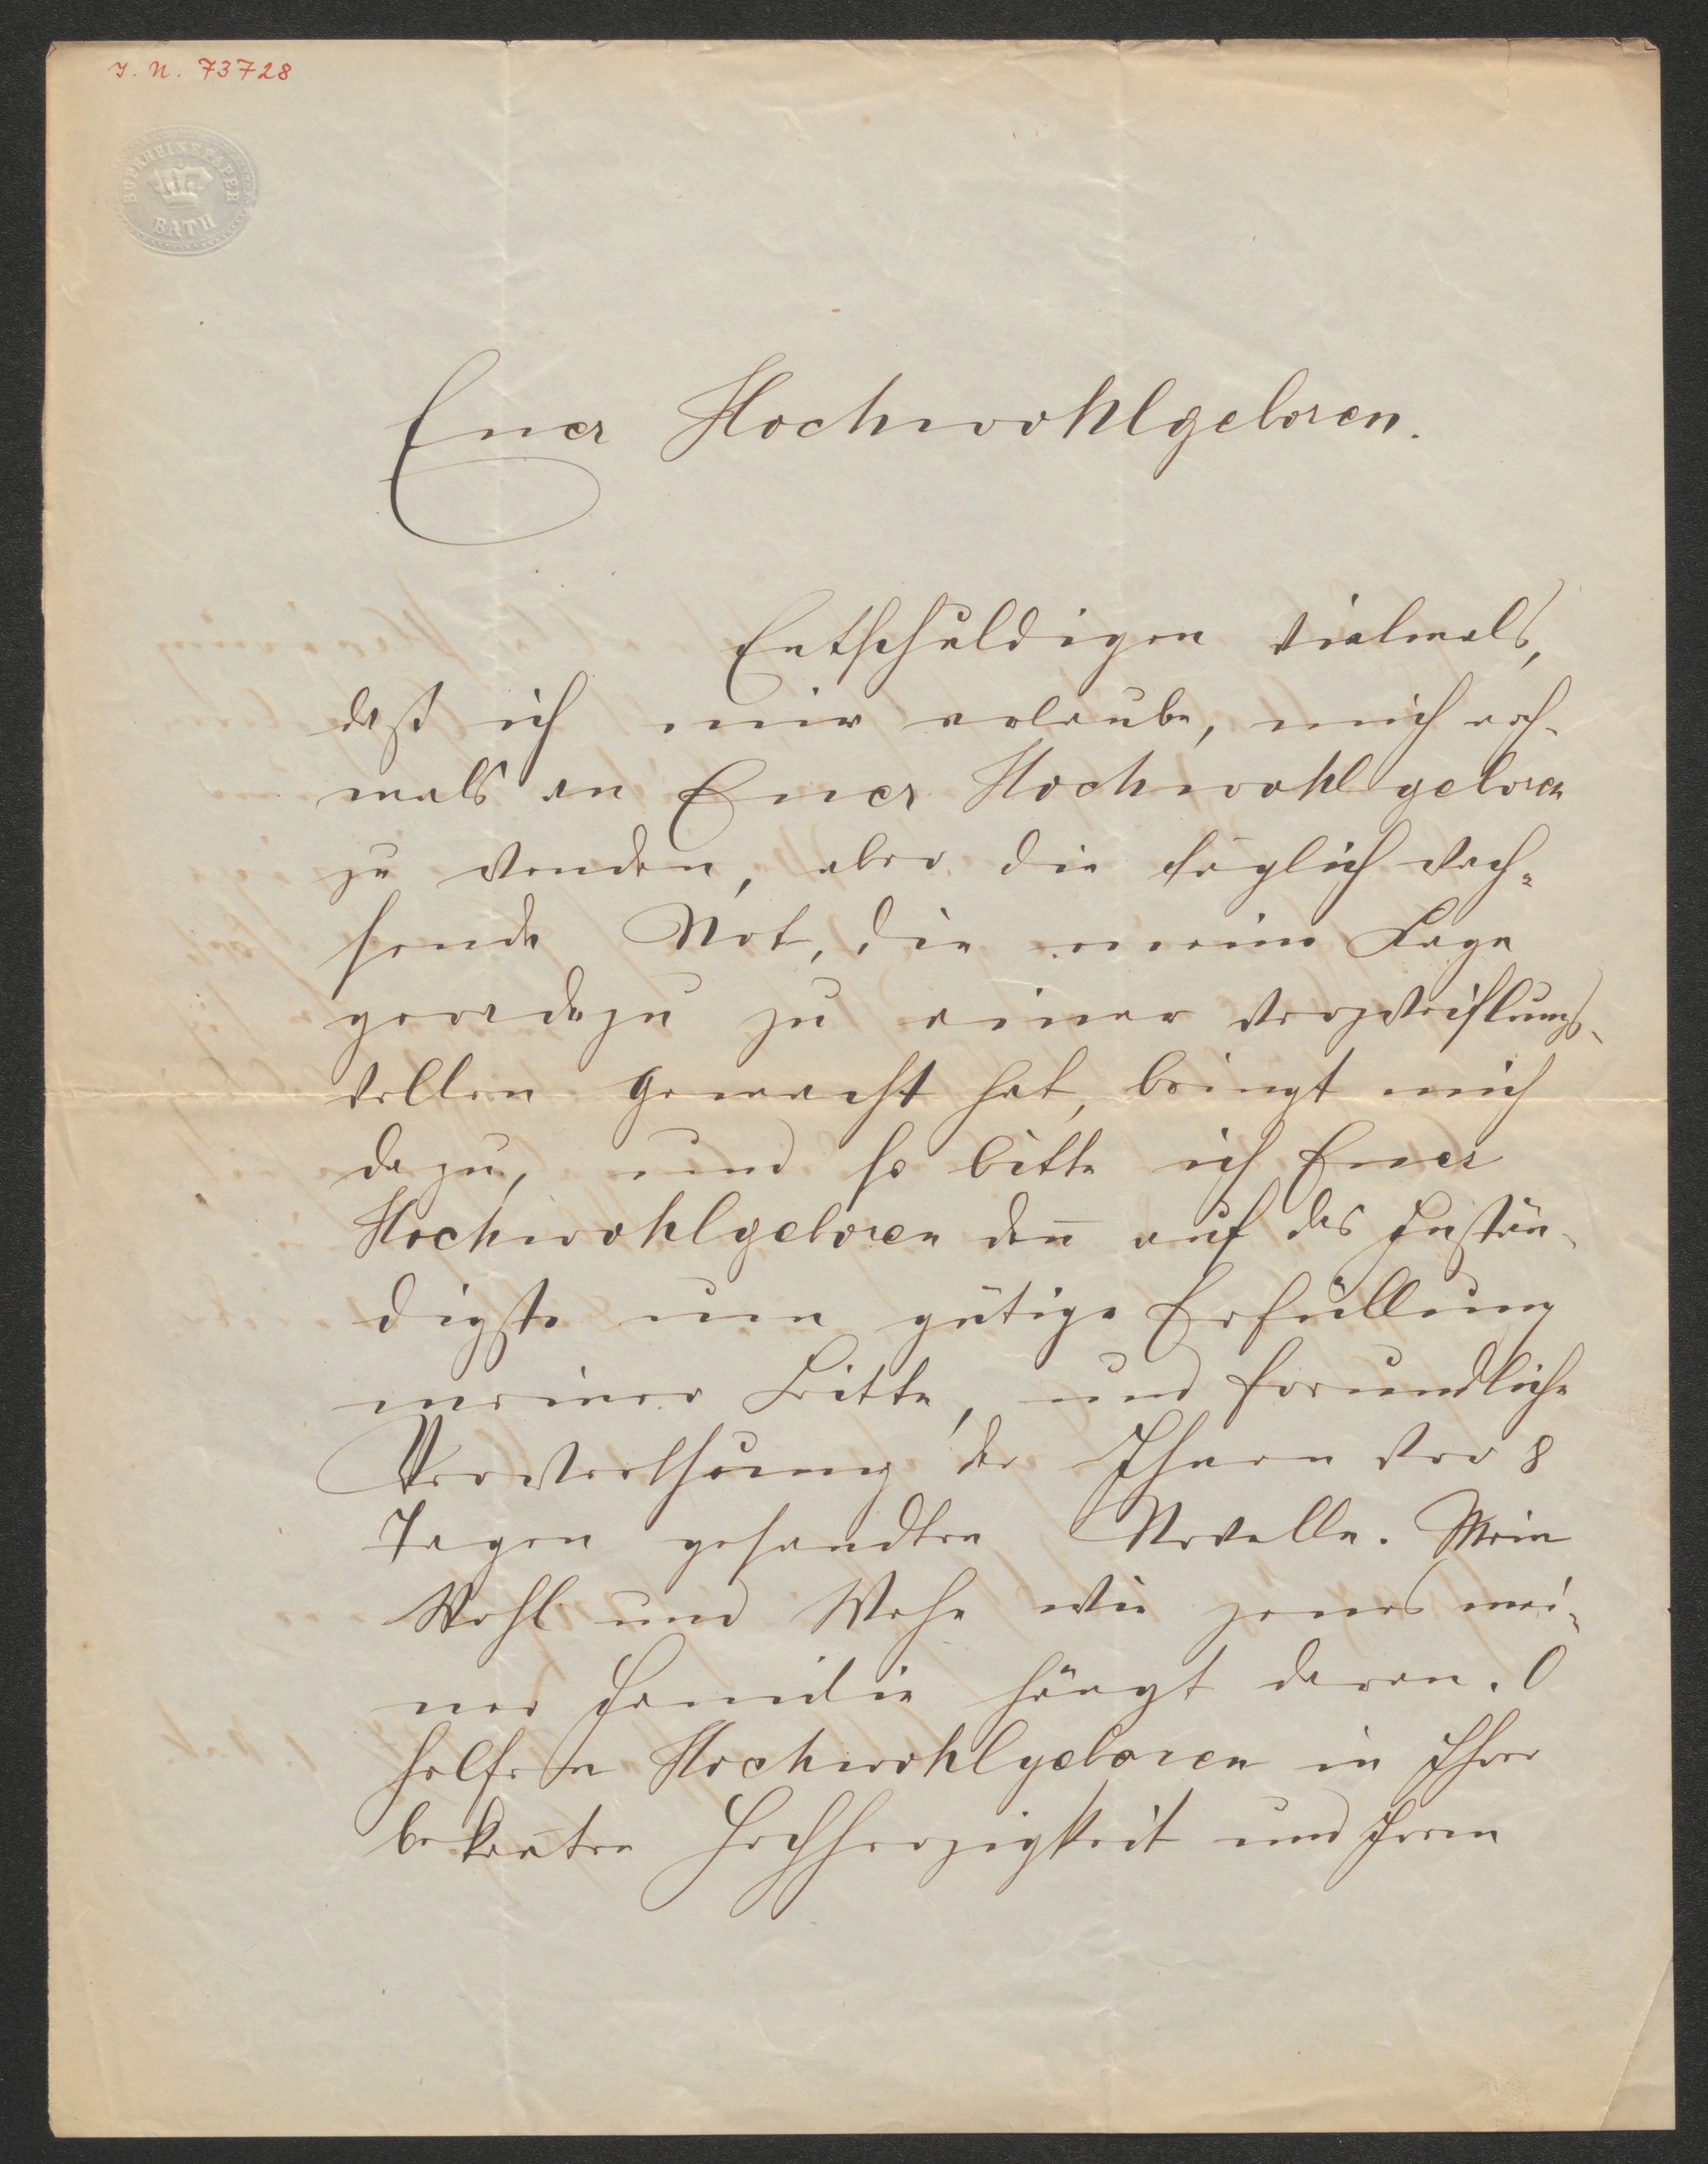 I. N. 73728
SUPERFINE PAPER
BATH
Euer Hochwohlgeboren.
Entschuldigen vielmals,
daß ich mir erlaube, mich noch-
mals an Euer Hochwohlgeboren
zu wenden, aber die täglich wach-
sende Not, die meine Lage
geradezu zu einer verzweiflungs-
vollen gemacht hat, bringt mich
dazu, und so bitte ich Euer
Hochwohlgeboren deñ auf das Instän-
digste um gütige Erfüllung
meiner Bitte, und freundliche
Verwerthung der Ihnen vor 8
Tagen gesandten Novelle. Mein
Wohl und Wehe wie jenes mei-
ner Familie hängt daran. O
helfen Hochwohlgeboren in Ihrer
bekañten Hochherzigkeit und